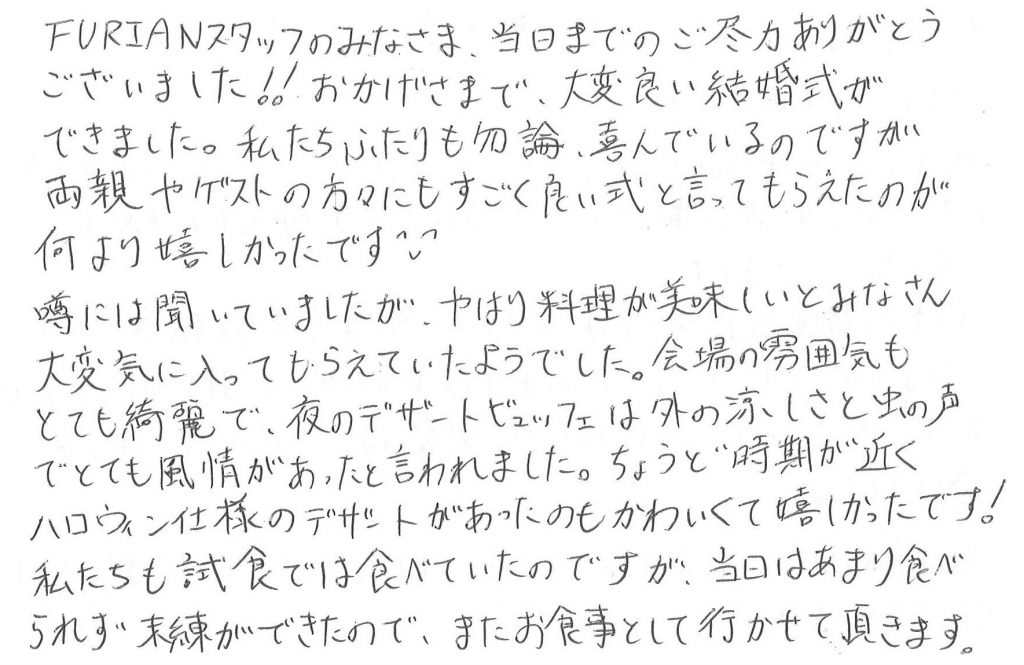 FURIANスタッフのみなさま、当日までのご尽力ありがとう
ございました!! おかげさまで、大変良い結婚式が
できました。私たちふたりも勿論、喜んでいるのですが
両親やゲストの方々にもすごく良い式と言ってもらえたのが
何より嬉しかったです^◡^
噂には聞いていましたが、やはり料理が美味しいとみなさん
大変気に入ってもらえていたようでした。会場の雰囲気も
とても綺麗で、夜のデザートビュッフェは外の涼しさと虫の声
でとても風情があったと言われました。ちょうど時期が近く
ハロウィン仕様のデザートがあったのもかわいくて嬉しかったです!
私たちも試食では食べていたのですが、当日はあまり食べ
られず未練ができたので、またお食事として行かせて頂きます。